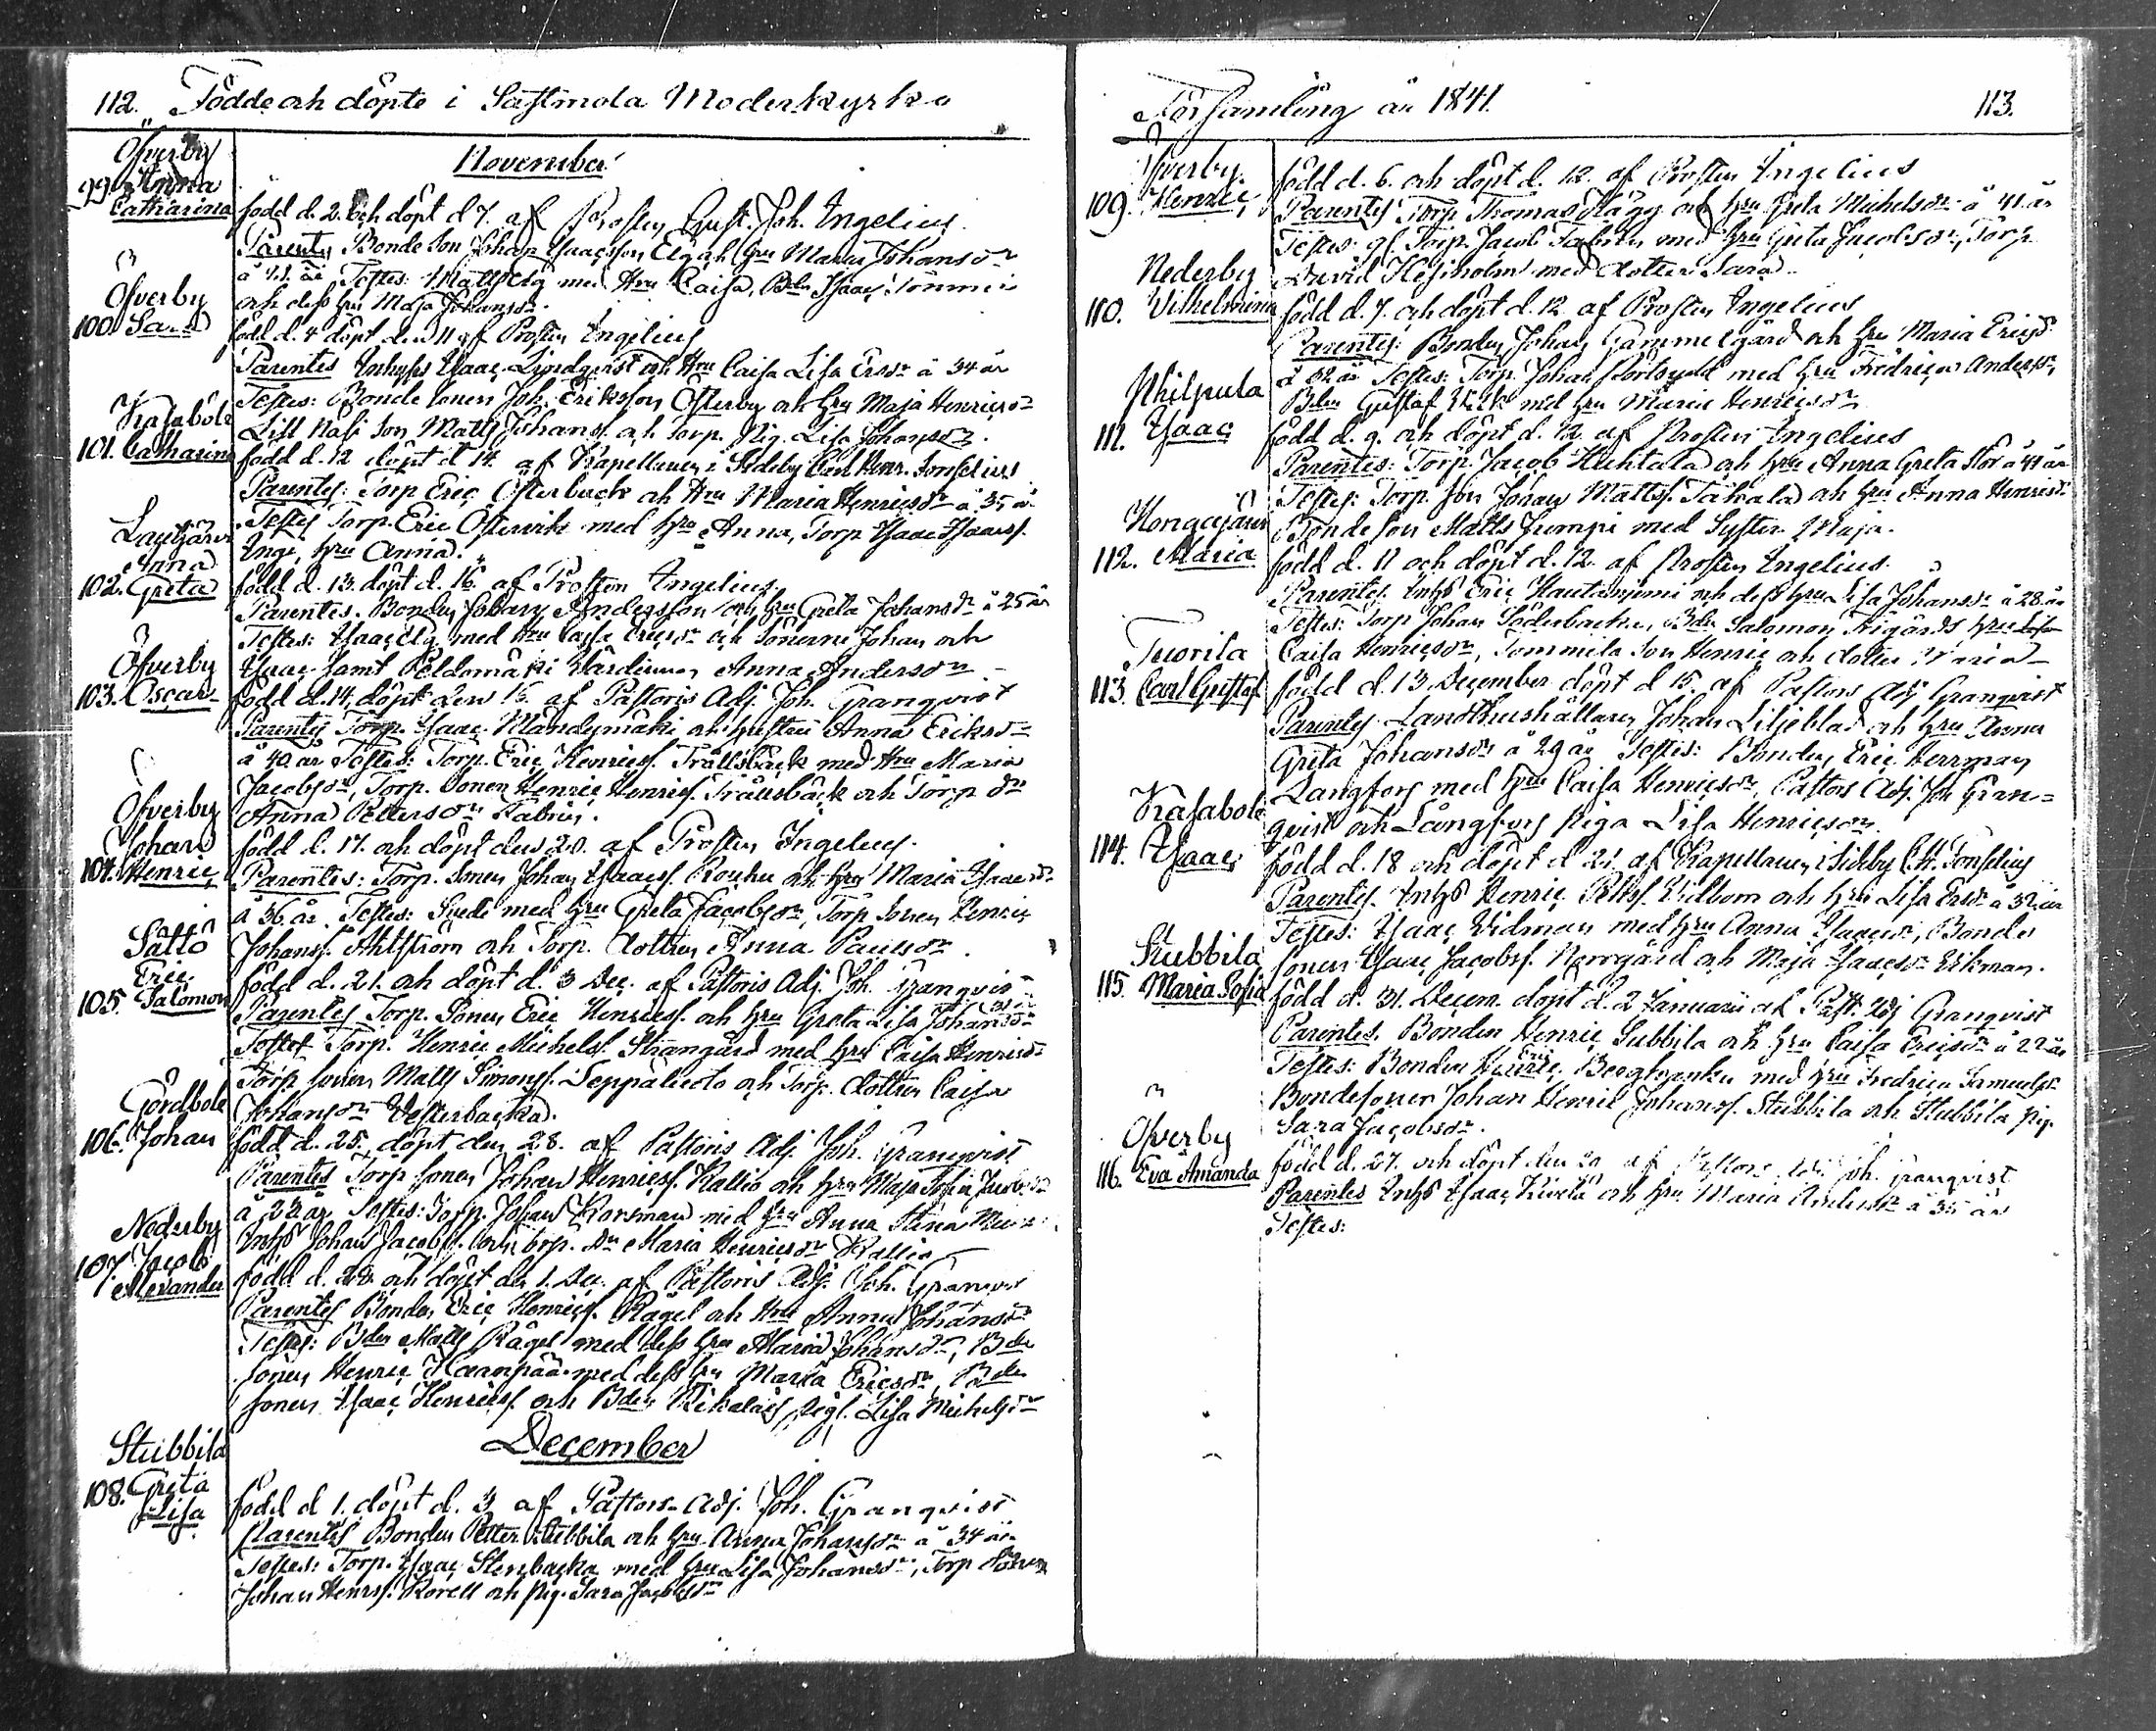 112. Födde och döpte i Sastmola Moderkyrko
Öfverby
November
99. Anna
Catharina född d. 2. och döpt d 7. af Prosten Gust. Joh. Ingelius.
Parentes Bonde Son Johan Isaacsson Elg och hru Maria Johansdr
à 41 år Testes: Matts Elg med Hru Caisa, Bdn Isaac Tommi
och dess hru Maja Johansdr.
Öfverby
100. Sara född d. 4 döpt den 11 af Prosten Ingelius
Parentes Inhyss Isaac Lindqvist och Hru Caisa Lisa Ersdr à 34 år
Testes: Bonde Sonen Joh. Eriksson Österby och hru Maja Henricsdr
Lill Nabi Son Matts Johanss. och torp. Pig. Lisa Johansdr.
Kasaböle
101. Catharina född d. 12 döpt d 14. af Kapellanen i Sideby Carl Henr. Tonselius
Parentes: Torp Eric Österback och Hru Maria Henricsdr à 35 år
Testes Torp. Eric Östervik med hru Anna, Torp Isaac Isaacss.
Inge, hru Anna.
Lautjärvi
Anna
102. Greta född d. 13. döpt d. 16. af Prosten Ingelius.
Parentes. Bonden Johan Andersson och hru Greta Johansdr à 25 år
Testes: Isaac Elg med Hru Caisa Ericsdr och Sönerne Johan och
Isaac samt Peldomäki Värdinna Anna Andersdr
Öfverby
103. Oscar född d. 14, döpt den 15 af Pastoris Adj. Joh. Granqvist
Parentes Torp. Isaac Mandymäki och hustru Anna Ericsdr
à 40 år Testes: Torp. Eric Henricss. Trällsbäck med Hru Maria
Jacobsdr, Torp. Sonen Henric Henricss. Trällsbäck och Torp dr
Anna Pettersdr Fabrin.
Öfverby
Johan
104. Henric född d. 17. och döpt den 20. af Prosten Ingelius.
Parentes: Torp. Sonen Johan Isaacss. Rouhu och hru Maria Isaacsdr
à 36 år. Testes: Svede med hru Greta Jacobsdr, Torp Sonen Henric
Johanss. Ahlström och Torp. dottren Anna Paulsdr.
Sältö
Eric
105. Salomon född d. 21. och döpt d. 3 Dec. af Pastoris Adj. Joh. Granqvist
Parentes Torp. Sonen Eric Henricss. och hru Greta Lisa Johansdr 31 år
Testes Torp. Henric Michelss. Strangård med hru Caisa Henricsdr
Torp sonen Matts Simonss. Seppäluoto och Torp. dottren Caisa
Johansdr Vesterbacka.
Gårdböle
106. Johan född d. 25. döpt den 28. af Pastoris Adj. Joh. Granqvist
Parentes Torp sonen Johan Henricss. Kallio och hru Maja Sofia Jacobsdr
à 22 år Testes: Torp. Johan Korsman med hru Anna Stina
Inhs Johan Jacobss. och torp. Dr Maria Henricsdr Kallio
Nederby
107. Jacob
Alexander född d. 28. och döpt den 1. Dec. af Pastoris Adj. Joh. Granqvist
Parentes Bonden Eric Henricss. Rågel och Hru Anna Johansdr
Testes: Bdn Matts Rågel med dess hru Maria Johansdr, Bde
sonen Henric Haanpää med dess hru Maria Ericsdr, Bde
sonen Isaac Henricss. och Bden Nikolais pigl. Lisa Michelsdr
December
Stubbila
108. Greta
Lisa född d 1. döpt d. 3 af Pastors Adj. Joh. Granqvist
Parentes Bonden Petter Stubbila och hru Anna Johansdr à 34 år.
Testes: Torp. Isaac Stenbacka med hru Lisa Johansdr, Torp Sonen
Johan Henrss. Rorell och pig. Sara Jacobsdr
Församling år 1841. 113.
Öfverby.
109. Henric född d. 6. och döpt d. 12. af Prosten Ingelius
Parentes Torp Thomas Hägg och hru Greta Michelsdr à 41. år
Testes: gl. Torp. Jacob Fabrin med hru Greta Jacobsdr, Torp
David Hesiholm med dotter Sara.
Nederby
110. Vilhelmina född d. 7. och döpt d. 12. af Prosten Ingelius
Parentes: Bonden Johan Gammelgård och hru Maria Ericsdr
à 32 år Testes: Torp. Johan med hru Fredrica Andersdr,
Bden Gustaf med hru Maria Henricsdr
Philpula
111. Isaac född d. 9. och döpt d. 12. af Prosten Ingelius
Parentes: Torp. Jacob Huhtala och hru Anna Greta Stor à 41 år
Testes: Torp. son Johan Mattss. Takala och hru Anna Henricsdr
Bonde son Matts Jumpi med Syster Maja.
Kongojärvi
112. Maria född d. 11 och döpt d. 12. af Prosten Ingelius.
Parentes. Inhs Eric Hautaniemi och dess hru Lisa Johansdr à 28 år
Testes: Torp Johan Söderbacka, Bdn Salomon Frigårds hru Lisa
Caisa Henricsdr, Tommila Son Henric och dotter Maria
Tuorila
113. Carl Gustaf född d. 13. December döpt d 15. af Pastors Adj Granqvist
Parentes. Landthushållaren Johan Liljeblad och hru Anna
Greta Johansdr à 29 år Testes: Bonden Eric Herrman
Langfors med hru Caisa Henricsdr, Pastors Adj. Joh Gran=
qvist och Långfors piga Lisa Henricsdr
Kasaböle
114. Isaac född d. 18 och döpt d 21. af Kapellanen i Sideby C. H. Tonselius
Parentes. Inhs Henric Pettss. och hru Lisa Ersdr à 32 år
Testes: Isaac Vidman med hru Anna Isaacsdr, Bonde
sonen Isaac Jacobss. Norrgård och Maja Isaacsdr Erkman.
Stubbila
115. Maria Sofia född d. 31. Decem. döpt d. 2 Januarii af Past. Adj Granqvist
Parentes. Bonden Henric Subbila och hru Caisa Ericsdr à 22 år
Testes: Bonden Henric Eric med hru Fredrica Samuelsdr
Bondesonen Johan Henric Johanss. Stubbila och Stubbila pig.
Sara Jacobsdr.
Öfverby
116. Eva Amanda född d. 27. och döpt den af Pastors Adj. Joh. Granqvist
Parentes Inhs Isaac Kivelä och hru Maria Andersdr à 35 år
Testes: